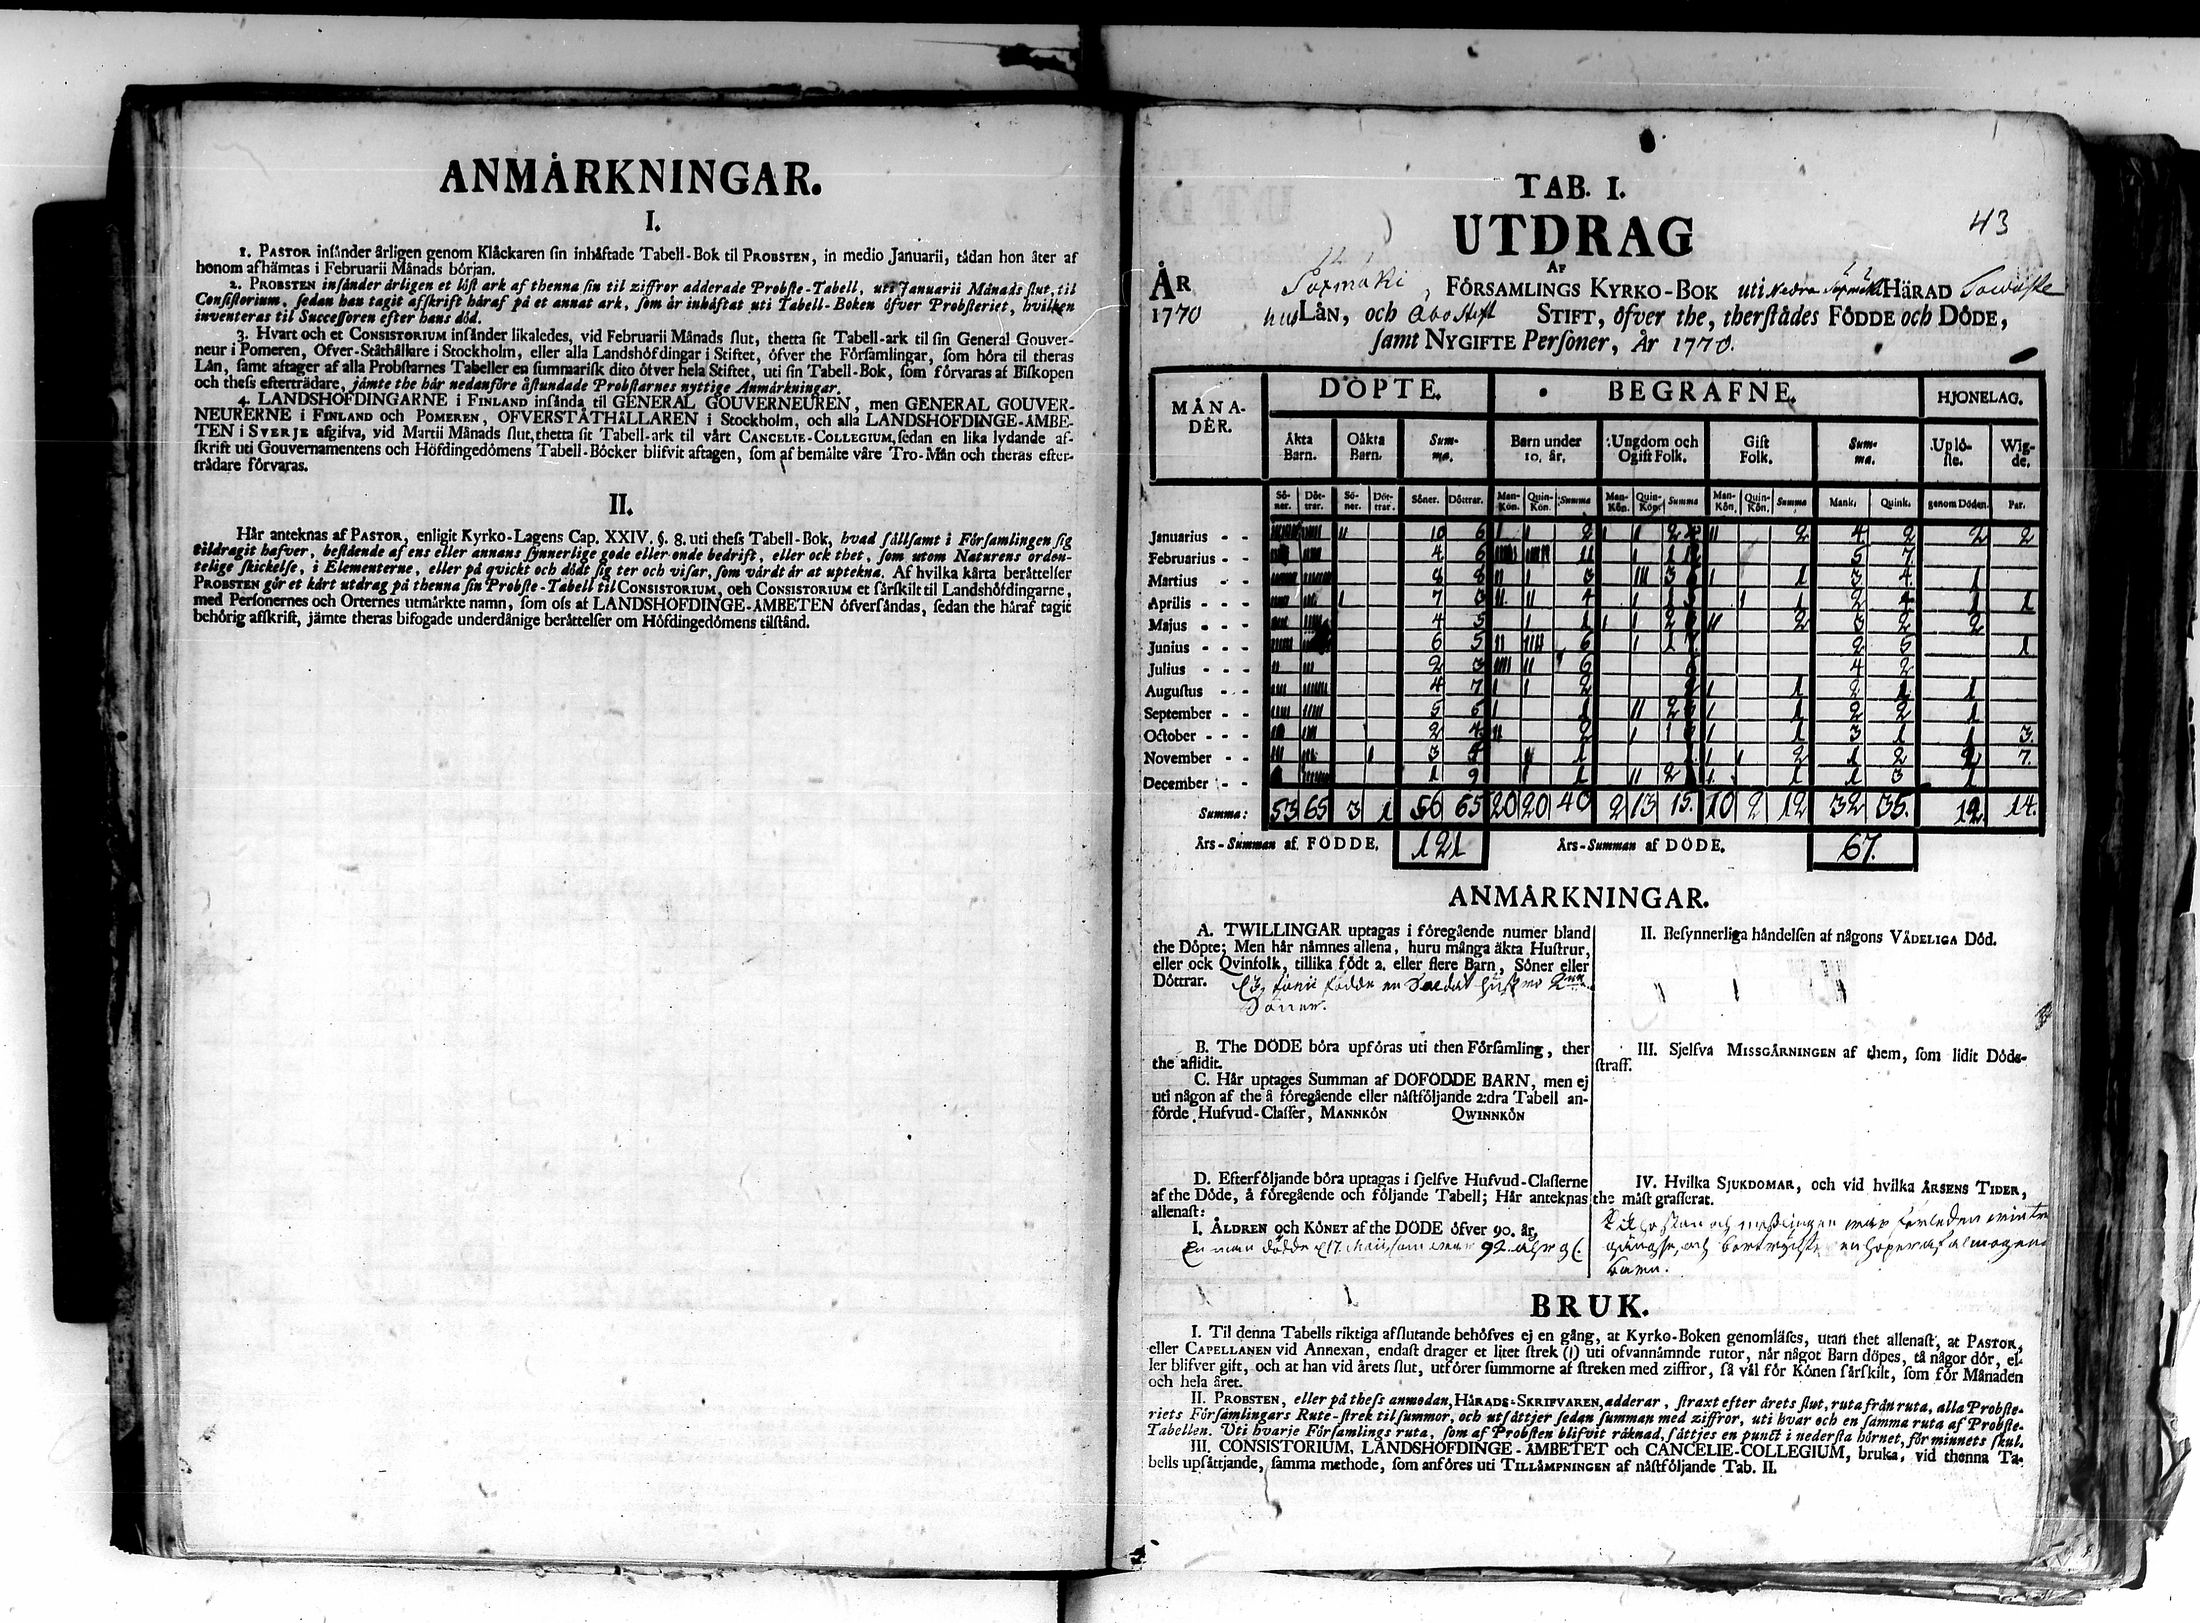 ANMÅRKNINGAR.
I.
1. PASTOR insånder årligen genom Klåckaren sin inhåftade Tabell-Bok til PROBSTEN, in medio Januarii, tådan hon åter af
honom afhåmtas i Februarii Månads början.
2. PROBSTEN insånder årligen et löst ark af thenna sin til ziffror adderade Probste-Tabell, uti Januarii Månads slut, til
Consistorium, sedan han tagit afskrift håraf på et annat ark, som år inhåftat uti Tabell-Boken öfver Probsteriet, hvilken
inventeras til Successoren efter hans död.
3. Hvart och et CONSISTORIUM insånder likaledes, vid Februarii Månads slut, thetta sit Tabell-ark til sin General Gouver-
neur i Pomeren, Öfver-Ståthållare i Stockholm, eller alla Landshöfdingar i Stiftet, öfver the Församlingar, som höra til theras
Lån, samt aftager af alla Probstarnes Tabeller en summarisk dito öfver hela Stiftet, uti sin Tabell-Bok, som förvaras af Biskopen
och thess eftertrådare, jämte the hår nedanföre åstundade Probstarnes nyttige Anmårkningar.
4. LANDSHÖFDINGARNE i FINLAND insånda til GENERAL GOUVERNEUREN, men GENERAL GOUVER-
NEURERNE i FINLAND och POMEREN, ÖFVERSTÅTHÅLLAREN i Stockholm, och alla LANDSHÖFDINGE-ÅMBE-
TEN i SVERJE afgifva, vid Martii Månads slut, thetta sit Tabell-ark til vårt CANCELIE-COLLEGIUM, sedan en lika lydande af-
skrift uti Gouvernamentens och Höfdingedömens Tabell-Böcker blifvit aftagen, som af bemålte våre Tro-Mån och theras efter-
trådare förvaras.
II.
Hår anteknas af PASTOR, enligit Kyrko-Lagens Cap. XXIV. §. 8. uti thess Tabell-Bok, hvad sållsamt i Församlingen sig
tildragit hafver, bestående af ens eller annans synnerlige gode eller onde bedrift, eller ock thet, som utom Naturens orden-
telige skickelse, i Elementerne, eller på qvickt och dödt sig ter och visar, som vårdt år at uptekna. Af hvilka kårta beråttelser
PROBSTEN gör et kårt utdrag på thenna sin Probste-Tabell til CONSISTORIUM, och CONSISTORIUM et sårskilt til Landshöfdingarne,
med Personernes och Orternes utmårkte namn, som oss af LANDSHÖFDINGE-ÅMBETEN öfversåndas, sedan the håraf tagit
behörig afskrift, jämte theras bifogade underdånige beråttelser om Höfdingedömens tilstånd.
43
TAB. I.
UTDRAG
AF
ÅR FÖRSAMLINGS KYRKO-BOK uti HÄRAD
1770 LÄN, och STIFT, öfver the, therstådes FÖDDE och DÖDE,
samt NYGIFTE Personer, År 1770.
MÅNA-DER. DÖPTE. BEGRAFNE. HJONELAG.
Äkta Barn. Oåkta Barn. Sum-ma. Barn under 10. år. Ungdom och Ogift Folk. Gift Folk. Sum-ma. Uplö-ste. Wig-de.
Sö-ner. Döt-trar. Sö-ner. Döt-trar. Söner. Döttrar. Man-Kön. Quin-Kön. Summa Man-Kön. Quin-Kön. Summa Man-Kön. Quin-Kön. Summa Mank. Quink. genom Döden. Par.
Januarius - - 10 6 2 2 2 4 2 2 2
Februarius - - 4 6 11 1 5 7
Martius - - 8 8 3 3 1 3 4 1
Aprilis - - - 7 3 4 1 1 2 4 1 1
Majus - - - 4 5 1 2 2 3 2 2
Junius - - - 6 5 6 1 2 5 1
Julius - - - 2 3 6 4 2
Augustus - - 4 7 2 1 2 1 1
September - - 5 5 1 2 1 2 2 1
October - - - 2 4 2 1 1 3 1 1 3.
November - - 3 1 2 1 2 2 7.
December - - 1 9 1 2 1 1 3 1
Summa: 53 65 3 1 56 65 20 20 40 2 13 15. 10 2 12 32 35. 12. 14.
Års-Summan af FÖDDE. 121 Års-Summan af DÖDE. 67.
ANMÅRKNINGAR.
A. TWILLINGAR uptagas i föregående numer bland
the Döpte; Men hår nåmnes allena, huru många åkta Hustrur,
eller ock Qvinfolk, tillika födt 2. eller flere Barn, Söner eller
Döttrar. födde en Soldat hustru
Söner.
B. The DÖDE böra upföras uti then Församling, ther
the aflidit.
C. Hår uptages Summan af DÖFÖDDE BARN, men ej
uti någon af the å föregående eller nåstföljande 2:dra Tabell an-
förde Hufvud-Classer, MANNKÖN QWINNKÖN
D. Efterföljande böra uptagas i sjelfve Hufvud-Classerne
af the Döde, å föregående och följande Tabell; Hår anteknas
allenast:
I. ÅLDREN och KÖNET af the DÖDE öfver 90. år,
En man dödde 17. Maii, som war 92. åhr gl.
II. Besynnerliga håndelsen af någons VÅDELIGA Död.
III. Sjelfva MISSGÅRNINGEN af them, som lidit Döds-
straff.
IV. Hvilka SJUKDOMAR, och vid hvilka ÅRSENS TIDER,
the måst grasserat.
och messlingen förleden wint
och af almogens
barn.
BRUK.
I. Til denna Tabells riktiga afslutande behöfves ej en gång, at Kyrko-Boken genomläses, utan thet allenast, at PASTOR,
eller CAPELLANEN vid Annexan, endast drager et litet strek (ı) uti ofvannåmnde rutor, når något Barn döpes, tå någor dör, el-
ler blifver gift, och at han vid årets slut, utförer summorne af streken med ziffror, så vål för Könen sårskilt, som för Månaden
och hela året.
II. PROBSTEN, eller på thess anmodan, HÅRADS-SKRIFVAREN, adderar, straxt efter årets slut, ruta från ruta, alla Probste-
riets Församlingars Rute-strek til summor, och utsåttjer sedan summan med ziffror, uti hvar och en samma ruta af Probste-
Tabellen. Uti hvarje Församlings ruta, som af Probsten blifvit råknad, såttjes en punct i nedersta hörnet, för minnets skul.
III. CONSISTORIUM, LANDSHÖFDINGE-ÅMBETET och CANCELIE-COLLEGIUM, bruka, vid thenna Ta-
bells upsåttjande, samma methode, som anföres uti TILLÅMPNINGEN af nåstföljande Tab. II.